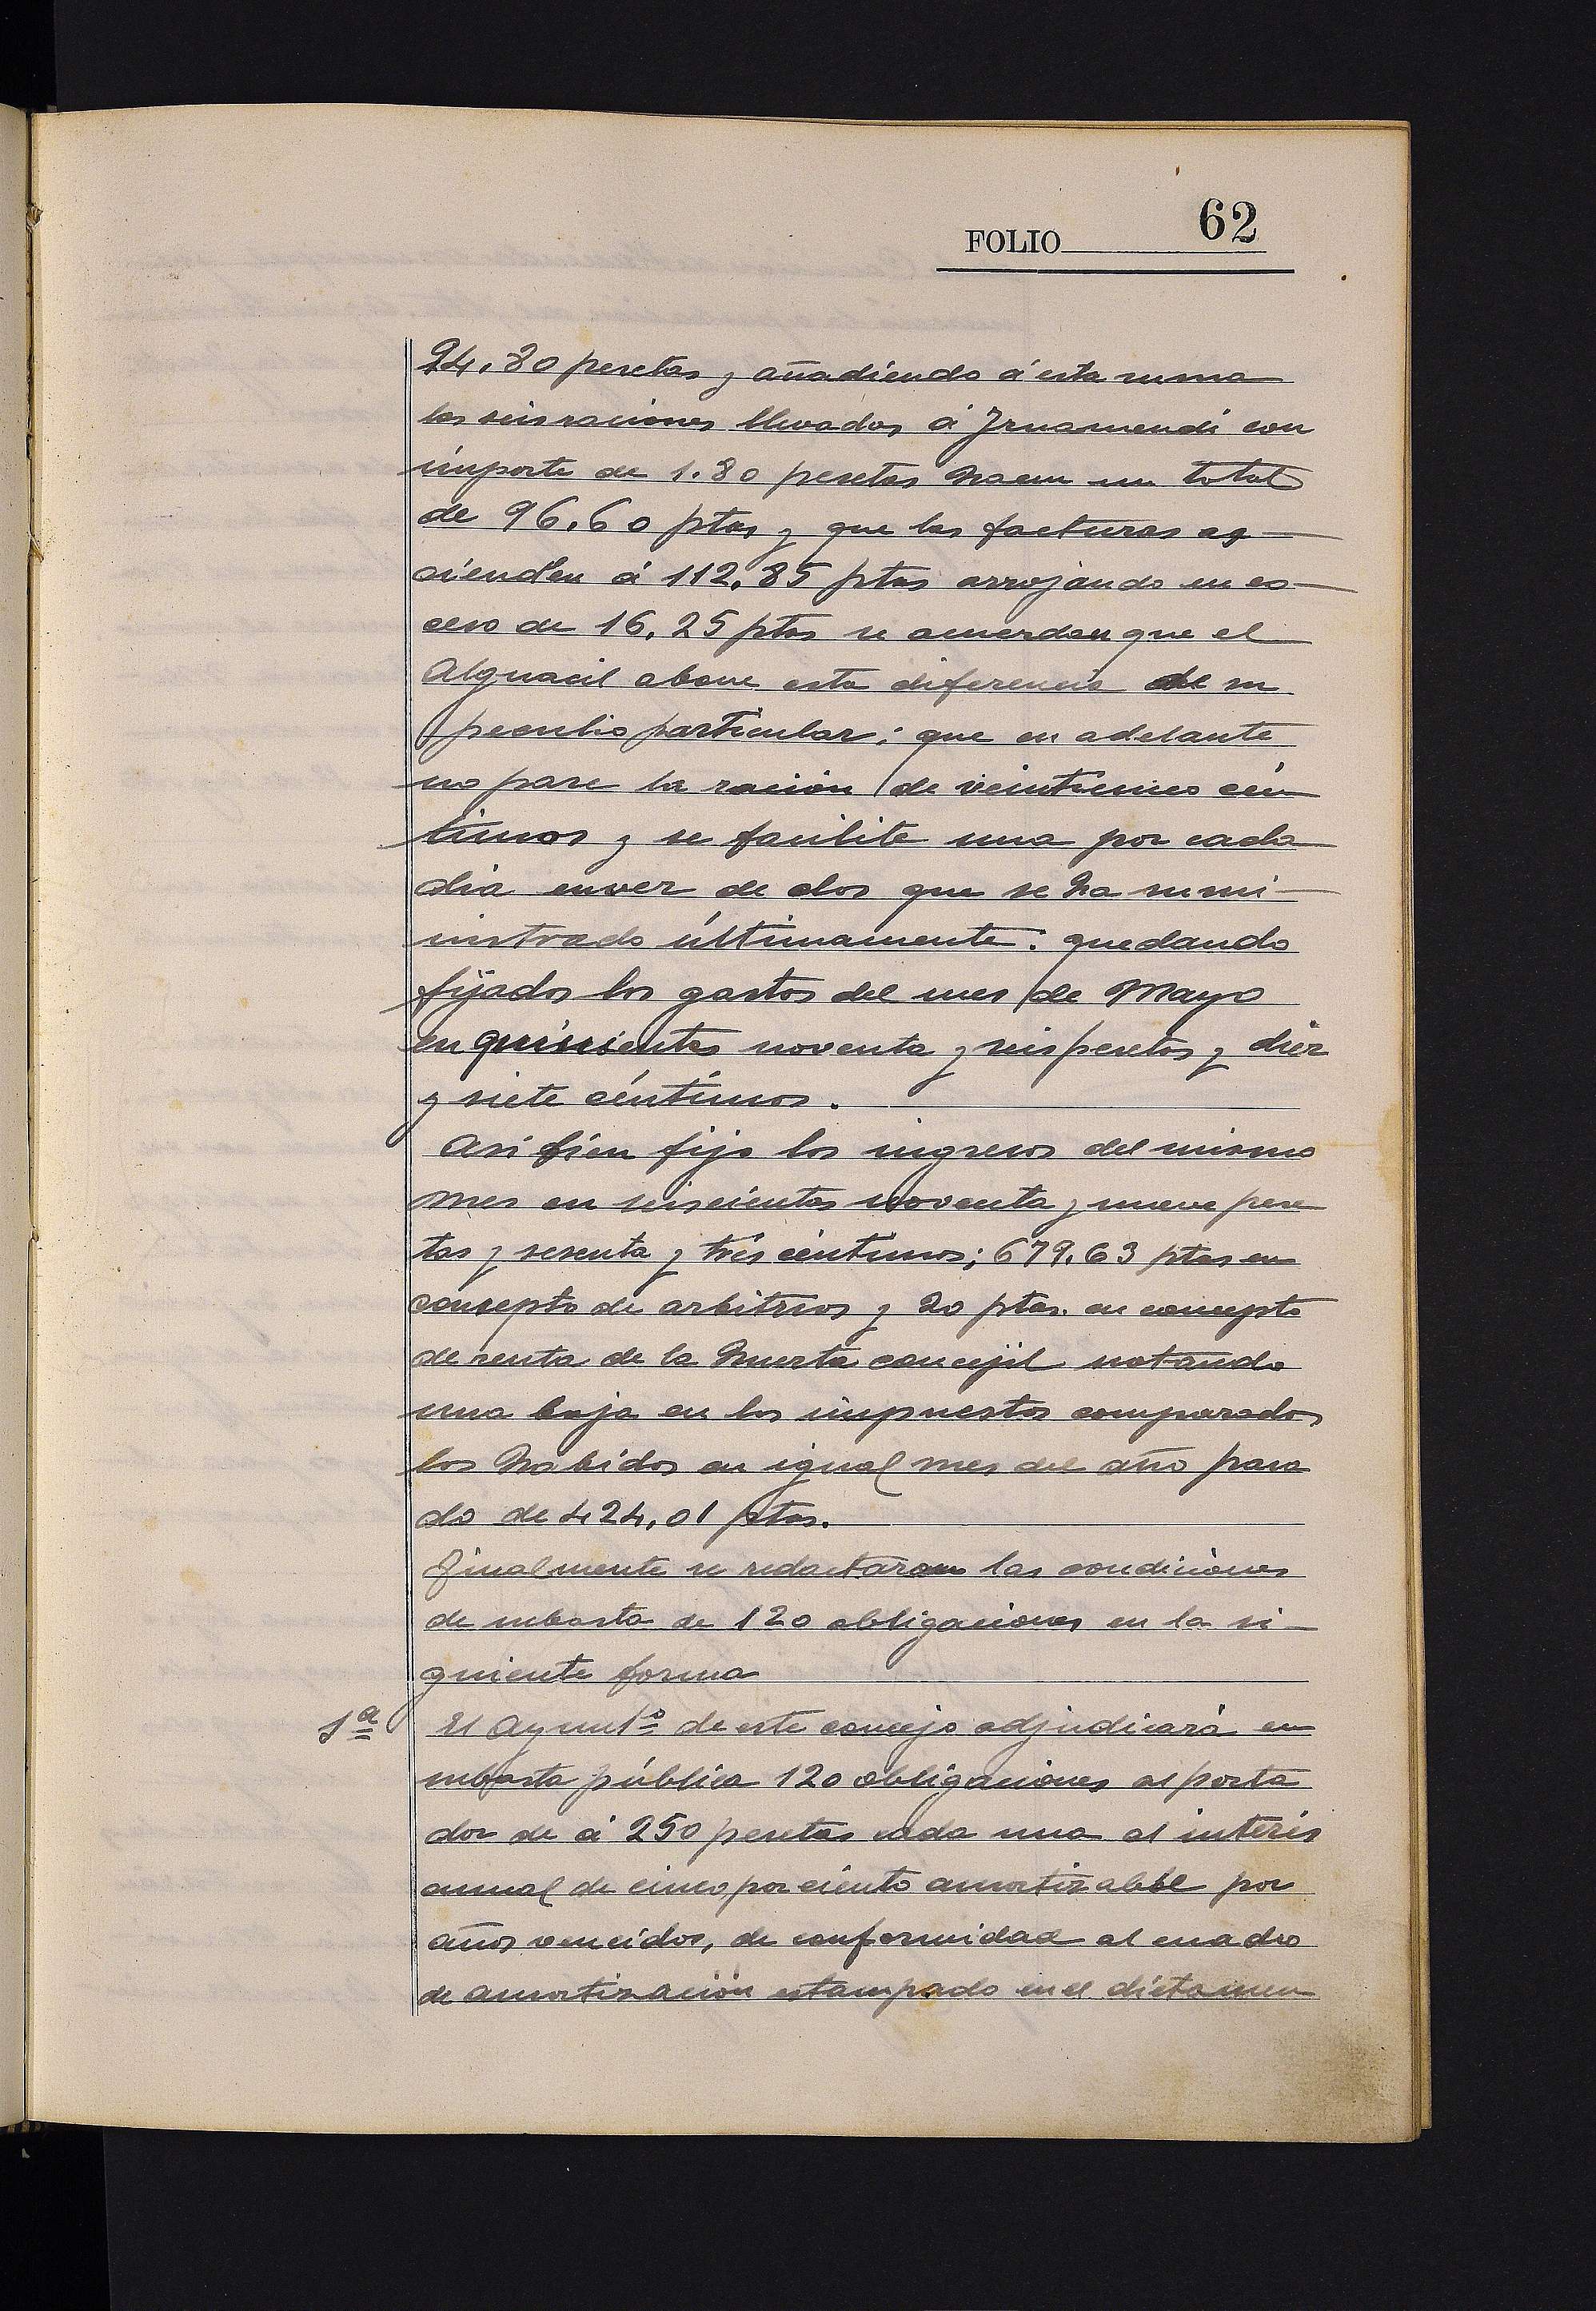 FOLIO 62
94,80 pesetas y añadiendo á esta suma
las seis raciones llevadas á Irnamendi con
importe de 1.80 pesetas hacen un total
de 96,60 ptas y que las facturas as-
cienden á 112,85 ptas arrojando en es-
ceso de 16,25 ptas se acuerdan que el
Alguacil abone esta diferencia de su
peculio particular; que en adelante
no pase la ración de veinticinco cén
timos y se facilite una por cada
dia en vez de dos que se ha sumi-
nistrado últimamente: quedando
fijados los gastos del mes de Mayo
en quinientas noventa y seis pesetas y diez
y siete céntimos.
Asi bien fijo los ingresos del mismo
mes en seiscientas noventa y nueve pese
tas y sesenta y trés céntimos; 679.63 ptas en
concepto de arbitrios y 20 ptas. en concepto
de renta de la huerta concejil notando
una baja en los impuestos comparados
los habidos en igual mes del año pasa
do de 424,01 ptas.
Finalmente se redactaron las condiciones
de subasta de 120 obligaciones en la si-
guiente forma
1ª El Ayuntº de este concejo adjudicará en
subasta pública 120 obligaciones al porta
dor de á 250 pesetas cada una al interés
anual de cinco por ciento amortizable por
años vencidos, de conformidad al cuadro
de amortización estampado en el dictamen